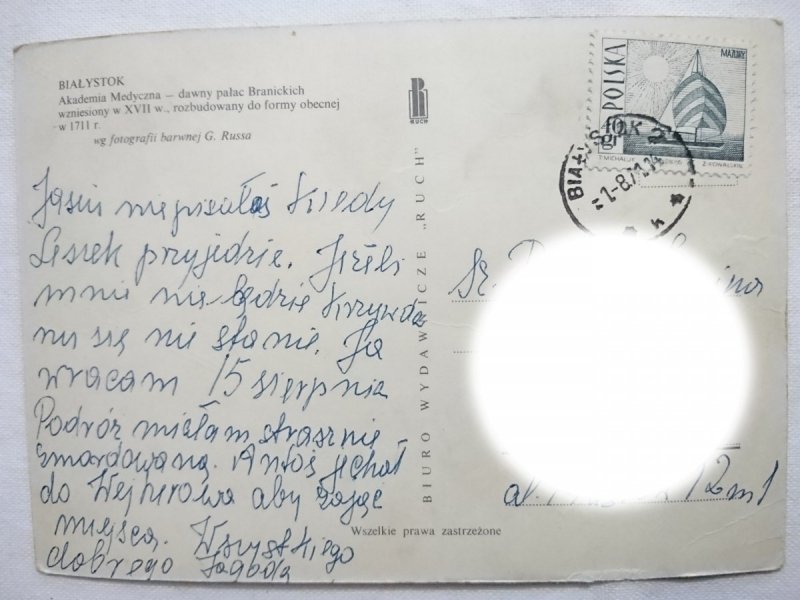 BIAŁYSTOK
Akademia Medyczna — dawny pałac Branickich
wzniesiony w XVII w., rozbudowany do formy obecnej
w 1711 r.
wg fotografii barwnej G. Russa
Jasiu nie pisałaś kiedy
Leszek przyjedzie. Jeżeli
mnie nie będzie krzywda
mu się nie stanie. Ja
wracam 15 sierpnia
Podróż miałam strasznie
zmordowaną. Antoś jechał
do Wejherowa aby zająć
miejsca. Wszystkiego
dobrego Jagoda
RUCH
BIURO WYDAWNICZE „RUCH"
Wszelkie prawa zastrzeżone
POLSKA
MAZURY
40 gr
T. MICHALUK
Z. KOWALSKI
BIAŁYSTOK 2
-1-8.71.14
Sz.
al. 12 m 1